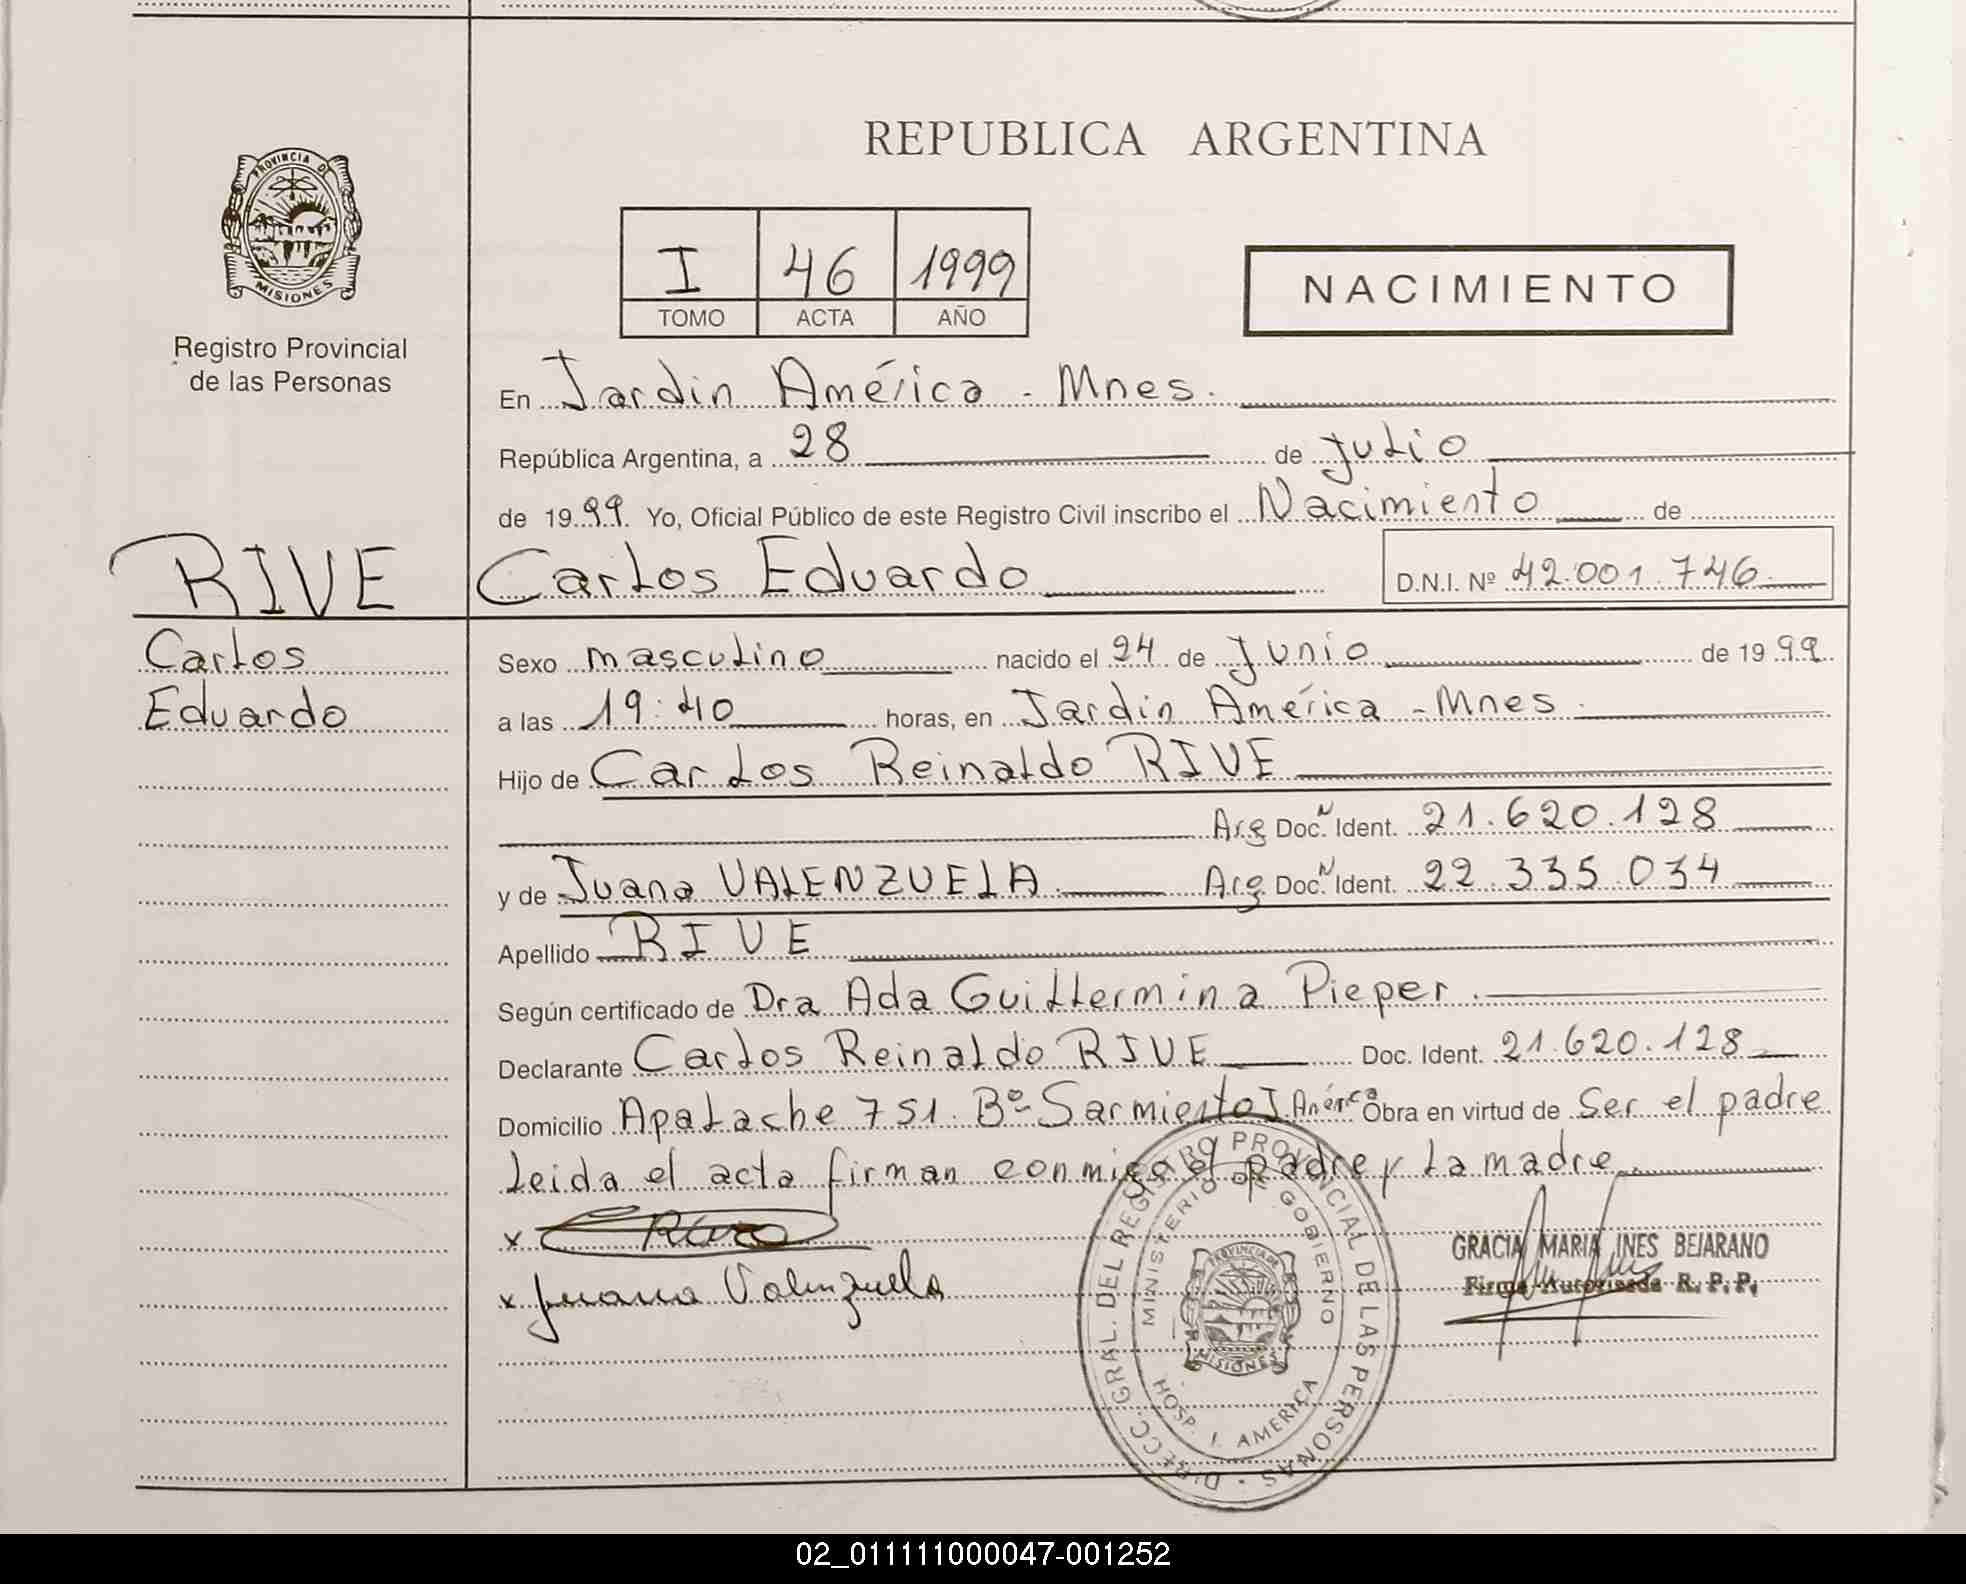 REPUBLICA ARGENTINA
PROVINCIA DE
MISIONES
Registro Provincial
de las Personas
I 46 1999
TOMO ACTA AÑO
NACIMIENTO
En Jardin América - Mnes.
República Argentina, a 28 de Julio
de 1999. Yo, Oficial Público de este Registro Civil inscribo el Nacimiento de
RIVE Carlos Eduardo D.N.I. Nº 42.001.746
Carlos
Eduardo
Sexo masculino nacido el 24 de Junio de 1999
a las 19:40 horas, en Jardin América - Mnes.
Hijo de Carlos Reinaldo RIVE
Arg Doc. N Ident. 21.620.128
y de Juana VALENZUELA. Arg. Doc. N Ident. 22.335.034
Apellido RIVE
Según certificado de Dra Ada Guillermina Pieper.
Declarante Carlos Reinaldo RIVE Doc. Ident. 21.620.128
Domicilio Apalache 751. Bº Sarmiento J. América Obra en virtud de Ser el padre
Leida el acta firman conmigo el padre y la madre.
x
x Juana Valenzuela
GRACIA MARIA INES BEJARANO
Firma Autorizada R. P. P.
DIRECC. GRAL. DEL REGISTRO PROVINCIAL DE LAS PERSONAS
MINISTERIO DE GOBIERNO
PROVINCIA DE
MISIONES
HOSP. J. AMERICA
02_011111000047-001252